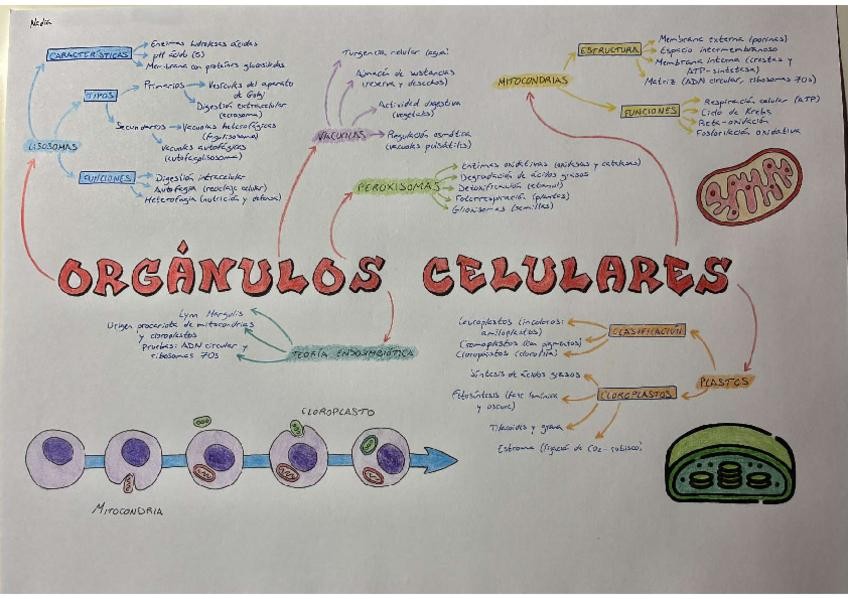 Nadia
CARACTERÍSTICAS
Enzimas hidrolasas ácidas
pH ácido (5)
Membrana con proteínas glucosiladas
TIPOS
Primarios
Vesículas del aparato
de Golgi
Digestión extracelular
(acrosoma)
Secundarios
Vacuolas heterofágicas
(fagolisosoma)
Vacuolas autofágicas
(autofagolisosoma)
LISOSOMAS
FUNCIONES
Digestión intracelular
Autofagia (reciclaje celular)
Heterofagia (nutrición y defensa)
Turgencia celular (agua)
Almacén de sustancias
(reserva y desechos)
Actividad digestiva
(vegetales)
VACUOLAS
Regulación osmótica
(vacuolas pulsátiles)
PEROXISOMAS
Enzimas oxidativas (oxidasas y catalasas)
Degradación de ácidos grasos
Detoxificación (etanol)
Fotorrespiración (plantas)
Glioxisomas (semillas)
MITOCONDRIAS
ESTRUCTURA
Membrana externa (porinas)
Espacio intermembranoso
Membrana interna (crestas y
ATP-sintetasa)
Matriz (ADN circular, ribosomas 70s)
FUNCIONES
Respiración celular (ATP)
Ciclo de Krebs
Beta-oxidación
Fosforilación oxidativa
ORGÁNULOS CELULARES
Lynn Margulis
Origen procariota de mitocondrias
y cloroplastos
Pruebas: ADN circular y
ribosomas 70s
TEORÍA ENDOSIMBIÓTICA
CLOROPLASTO
MITOCONDRIA
Leucoplastos (incoloros:
amiloplastos)
Cromoplastos (con pigmentos)
Cloroplastos (clorofila)
CLASIFICACIÓN
PLASTOS
CLOROPLASTOS
Síntesis de ácidos grasos
Fotosíntesis (fase lumínica
y oscura)
Tilacoides y grana
Estroma (fijación de CO2-rubisco)